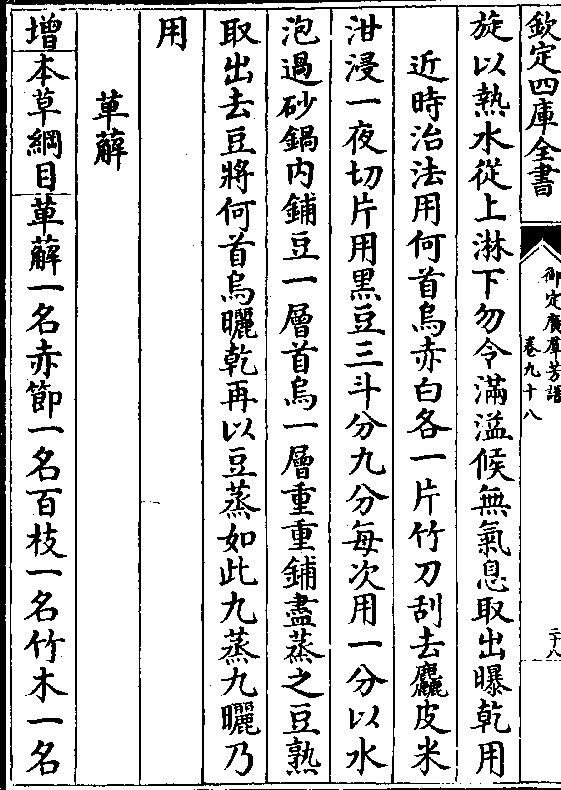 欽定四庫全書
御定廣羣芳譜
卷九十八
二十八
旋以熱水從上淋下勿令滿溢候無氣息取出曝乾用
近時治法用何首烏赤白各一片竹刀刮去麤皮米
泔浸一夜切片用黑豆三斗分九分每次用一分以水
泡過砂鍋内鋪豆一層首烏一層重重鋪盡蒸之豆熟
取出去豆將何首烏曬乾再以豆蒸如此九蒸九曬乃
用
萆薢
增本草綱目萆薢一名赤節一名百枝一名竹木一名